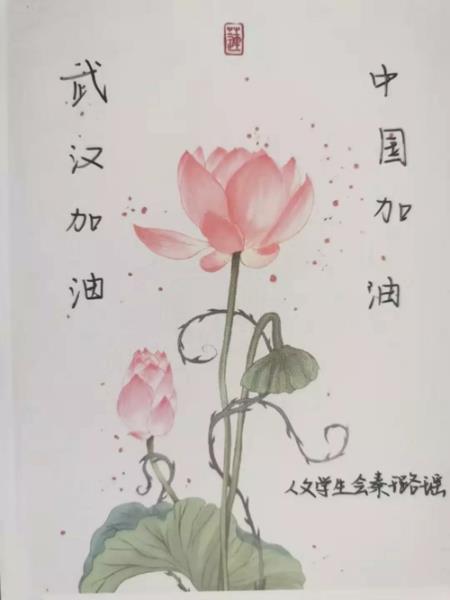 蓮
武汉加油
中国加油
人文学生会秦璐瑶